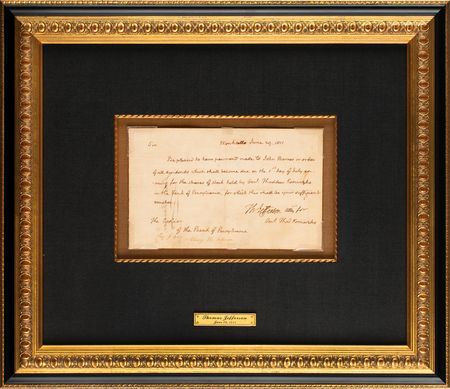 Sir Monticello June 29. 1811
Be pleased to have payment made to John Barnes or order
of all dividends which shall become due on the 1st day of July
for the shares of stock held by Genl. Thaddeus Kosciuszko
in the Bank of Pensylvania, for which this shall be your sufficient
Th Jefferson atty for
The Cashier Genl. Thad Kosciuszko
of the Bank of Pensylvania
Thomas Jefferson
June 29, 1811